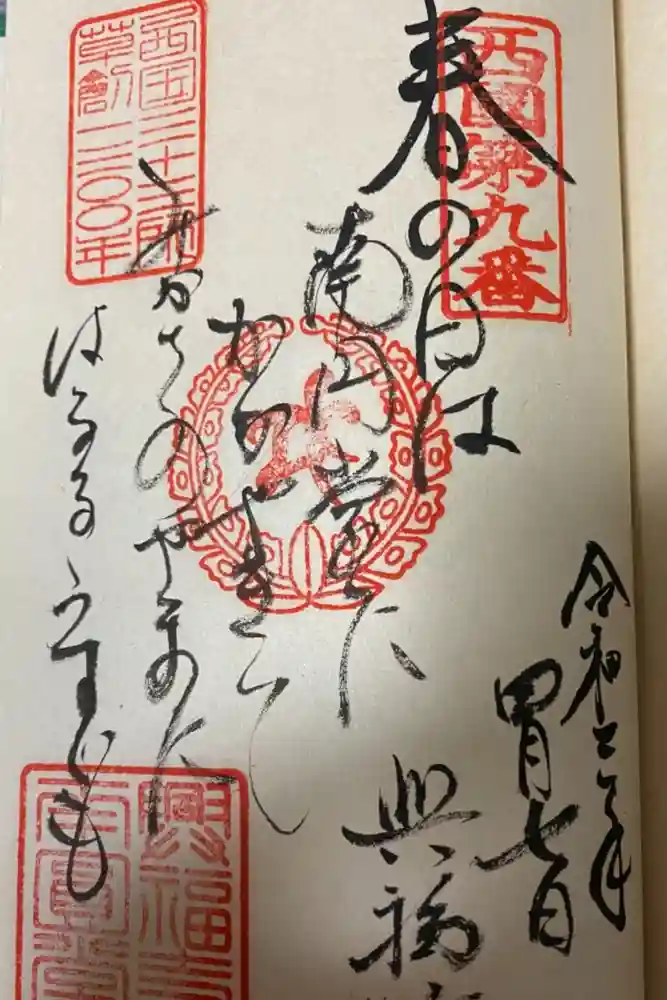 西國第九番
春の日は
南円堂に
かゝやきて
みかさのやまに
はるるうす
ぐも
西国三十三所
草創一三〇〇年
令和二年
四月七日
興福
興福
南圓堂